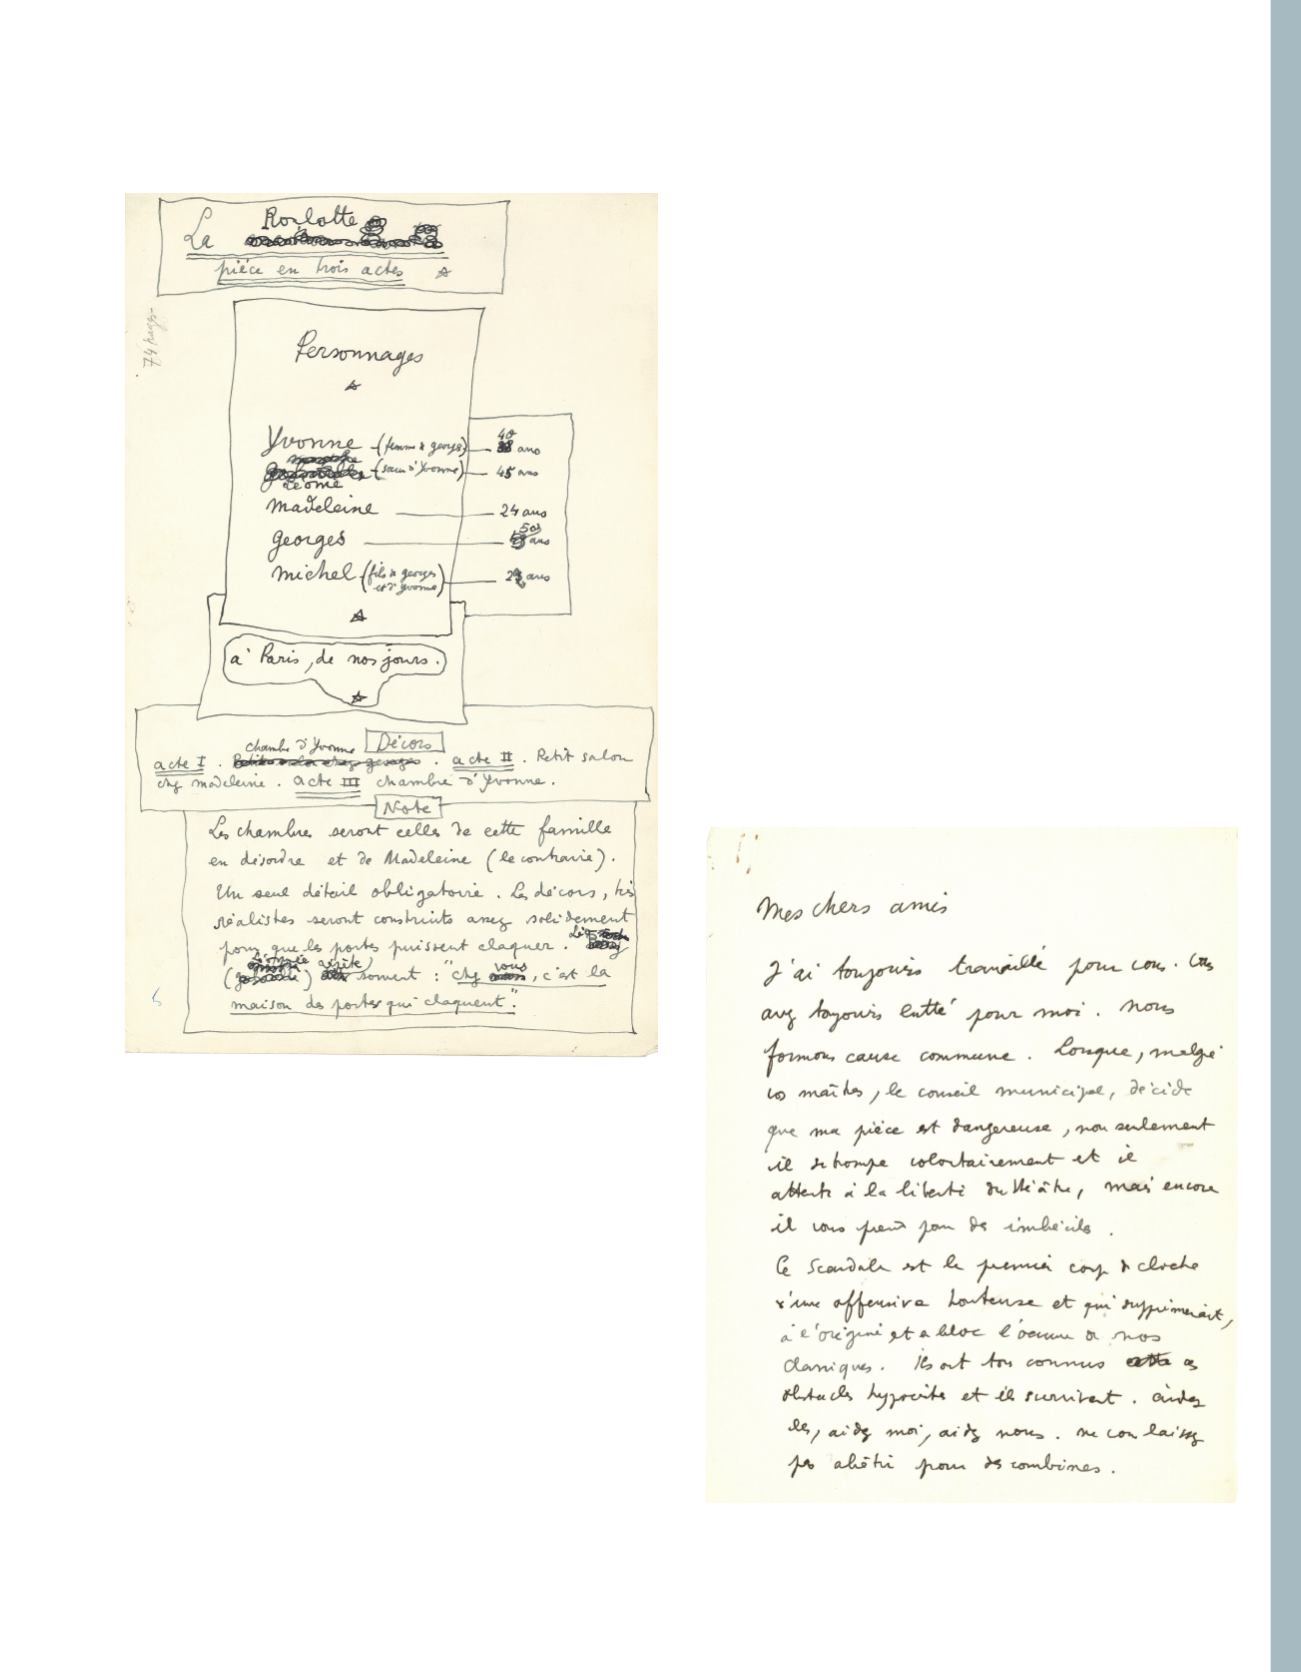 La Roulotte
pièce en trois actes
74 pages
Personnages
Yvonne (femme de georges) — 40 ans
Léonie (sœur d'Yvonne) — 45 ans
Madeleine — 24 ans
georges — 50 ans
michel (fils de georges — ans
et d'Yvonne)
à Paris, de nos jours.
Décors
acte I . chambre d'Yvonne . acte II . Petit salon
chez madeleine . acte III chambre d'Yvonne .
Note
Les chambres seront celles de cette famille
en désordre et de Madeleine (le contraire).
Un seul détail obligatoire . Les décors, très
réalistes seront construits assez solidement
pour que les portes puissent claquer .
(Léonie) répète souvent : "chez vous, c'est la
maison des portes qui claquent".
Mes chers amis
J'ai toujours travaillé pour vous. Vous
avez toujours lutté pour moi. Nous
formons cause commune. Lorsque, malgré
vos maîtres, le conseil municipal, décide
que ma pièce est dangereuse, non seulement
il se trompe volontairement et il
attente à la liberté du théâtre, mais encore
il vous prend pour des imbéciles .
Ce scandale est le premier coup de cloche
d'une offensive honteuse et qui supprimerait,
à l'origine et a bloc l'œuvre de nos
classiques. Ils ont tous connus ces
obstacles hypocrites et ils survivent. aidez
les, aidez moi, aidez nous. ne vous laissez
pas abêtir pour des combines.